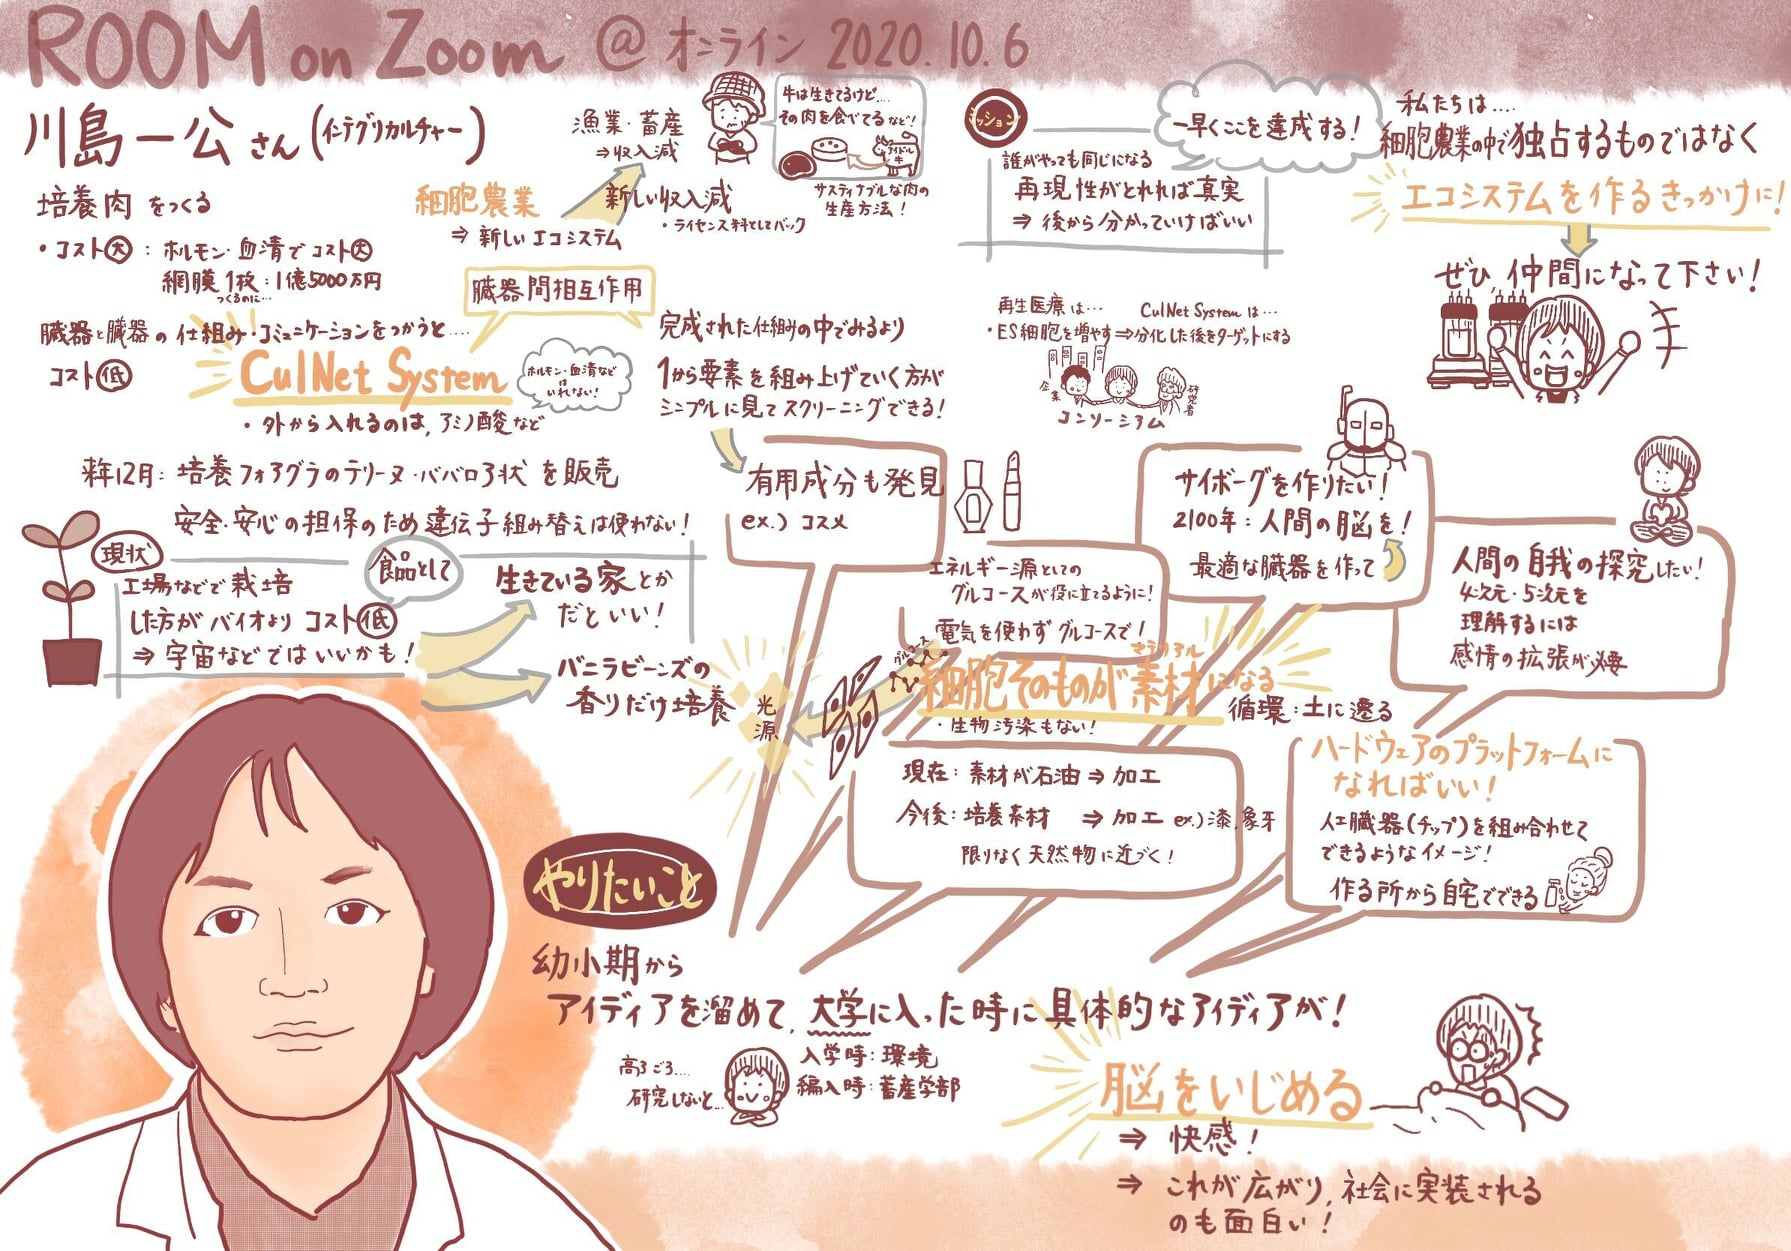 ROOM on Zoom @ オンライン 2020.10.6
川島一公さん(インテグリカルチャー)
培養肉をつくる
・コスト大：ホルモン・血清でコスト大
網膜1枚：1億5000万円
つくるのに…
臓器と臓器の仕組み・コミュニケーションをつかうと….
コスト低
CulNet System
・外から入れるのは、アミノ酸など
ホルモン・血清など
は
いれない！
臓器間相互作用
細胞農業
⇒ 新しいエコシステム
漁業・畜産
⇒収入減
新しい収入減
・ライセンス料としてバック
牛は生きてるけど….
その肉を食べてるなど！
アイドル
牛
サスティナブルな肉の
生産方法！
完成された仕組みの中でみるより
1から要素を組み上げていく方が
シンプルに見てスクリーニングできる！
有用成分も発見
ex.) コスメ
来年12月：培養フォアグラのテリーヌ・ババロア状を販売
安全・安心の担保のため遺伝子組み替えは使わない！
現状
工場などで栽培
した方がバイオより コスト低
⇒ 宇宙などではいいかも！
食品として
生きている家とか
だといい！
バニラビーンズの
香りだけ培養
ミッション
一早くここを達成する！
誰がやっても同じになる
再現性がとれれば真実
⇒ 後から分かっていけばいい
私たちは….
細胞農業の中で独占するものではなく
エコシステムを作るきっかけに！
ぜひ仲間になって下さい！
再生医療は…
・ES細胞を増やす⇒分化した後をターゲットにする
CulNet Systemは…
企業
研究者
コンソーシアム
サイボーグを作りたい！
2100年：人間の脳を！
最適な臓器を作って
人間の自我の探究したい！
4次元・5次元を
理解するには
感情の拡張が必要
エネルギー源としての
グルコースが役に立てるように！
電気を使わずグルコースで！
グルコース
光源
マテリアル
細胞そのものが素材になる
・生物汚染もない！
循環：土に還る
現在：素材が石油 ⇒ 加工
今後：培養素材 ⇒ 加工 ex.)漆、象牙
限りなく天然物に近づく！
ハードウェアのプラットフォームに
なればいい！
人工臓器(チップ)を組み合わせて
できるようなイメージ！
作る所から自宅でできる
やりたいこと
幼小期から
アイディアを溜めて、大学に入った時に具体的なアイディアが！
高3ごろ….
研究しないと…
入学時：環境
編入時：畜産学部
脳をいじめる
⇒ 快感！
⇒ これが広がり、社会に実装される
のも面白い！